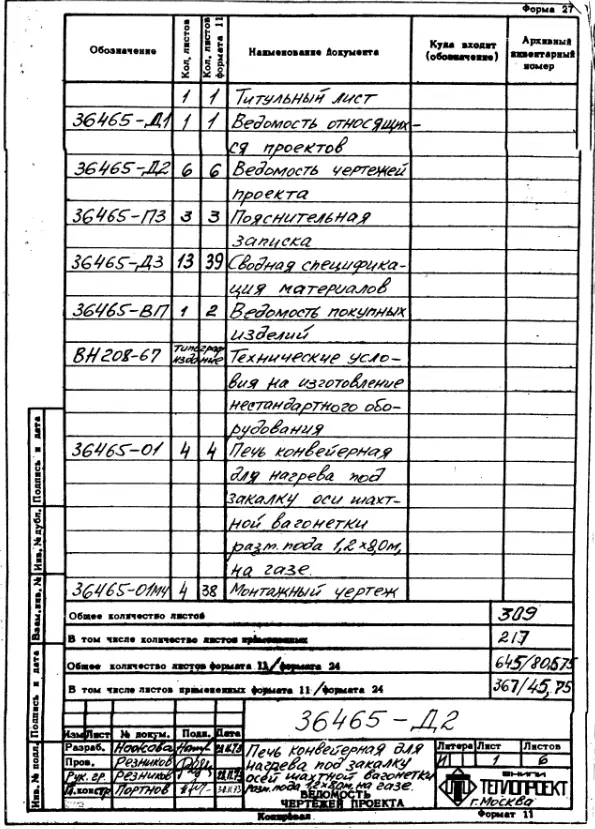 Форма 27
Обозначение Кол. листов Кол. листов формата 11 Наименование документа Куда входит (обозначение) Архивный инвентарный номер
1 1 Титульный лист
36465-Д1 1 1 Ведомость относящих-
ся проектов
36465-Д2 6 6 Ведомость чертежей
проекта
36465-ПЗ 3 3 Пояснительная
записка
36465-Д3 13 39 Сводная специфика-
ция материалов
36465-ВП 1 2 Ведомость покупных
изделий
ВН208-67 Типограф издание Технические усло-
вия на изготовление
нестандартного обо-
рудования
36465-01 4 4 Печь конвейерная
для нагрева под
закалку оси шахт-
ной вагонетки
разм. пода 1,2×8,0м,
на газе.
36465-01МЧ 4 38 Монтажный чертеж
Общее количество листов 309
В том числе количество листов примененных 217
Общее количество листов формата 11/формата 24 645/80,575
В том числе листов примененных формата 11/формата 24 367/45,75
36465-Д2
Изм Лист № докум. Подп. Дата
Разраб.
Пров. Резников
Рук. гр. Резников
Н.констр Портнов
Печь конвейерная для
нагрева под закалку
осей шахтной вагонетки
разм. пода 1,2×8,0м, на газе.
ВЕДОМОСТЬ
ЧЕРТЕЖЕЙ ПРОЕКТА
Литера Лист Листов
И 1 6
ВНИПИ
ТЕПЛОПРОЕКТ
г. Москва
Копировал Формат 11
Инв. № подл. Подпись и дата Взам.инв.№ Инв. № дубл. Подпись и дата